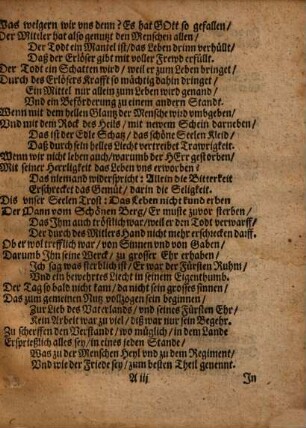 Was weigern wir vns denn? Es hat Gott so gefallen/
Der Mittler hat also genutzt den Menschen allen/
Der Todt ein Mantel ist/ das Leben drinn verhüllt/
Daß der Erlöser gibt mit voller Frewd erfüllt.
Der Todt ein Schatten wird/ weil er zum Leben bringet/
Durch des Erlösers Krafft so mancher daraus dringet/
Ein Mittel nur allein zum Leben wird genand/
Vnd ein Beförderung zu einem andern Standt.
Wenn mit dem hellen Glantz der Mensche wird vmbgeben/
Vnd mit dem Rock des Heils/ mit newem Schein darneben/
Das ist der Edle Schatz/ das schöne Seelen Kleid/
Daß durch sein helles Liecht vertreibet Trawrigkeit.
Wenn wir nicht leben auch/ warumb der HErr gestorben/
Mit seiner Herrligkeit das Leben vns erworben?
Das niemand widerspricht: Allein die Bitterkeit
Erschrecket das Gemüt/ darin die Seligkeit.
Dis vnser Seelen Trost: Das Leben nicht kund erben
Der Mann vom Schönen Berg/ Er muste zuvor sterben/
Das Ihm auch tröstlich war/ weil er den Todt verwarff/
Der durch des Mitlers Hand nicht mehr erschrecken darff.
Ob er wol trefflich war/ von Sinnen vnd von Gaben/
Darumb Ihn seine Werck/ zu grosser Ehr erhaben/
Ich sag was sterblich ist/ Er war der Fürsten Ruhm/
Vnd ein bewehrtes Liecht in seinem Eigenthumb.
Der Tag so bald nicht kam/ da nicht sein grosses sinnen/
Das zum gemeinen Nutz vollzogen sein beginnen/
Zur Lieb des Vaterlands/ vnd seines Fürsten Ehr/
Kein Arbeit war zu viel/ diß war nur sein Begehr.
Zu scherffen den Verstande/ wo müglich/ in dem Lande
Ersprießlich alles sey/ in eines jeden Stande/
Was zu der Menschen Heyl vnd zu dem Regiment/
Vnd wie der Friede sey/ zum besten Theil genennt.
A iij
In